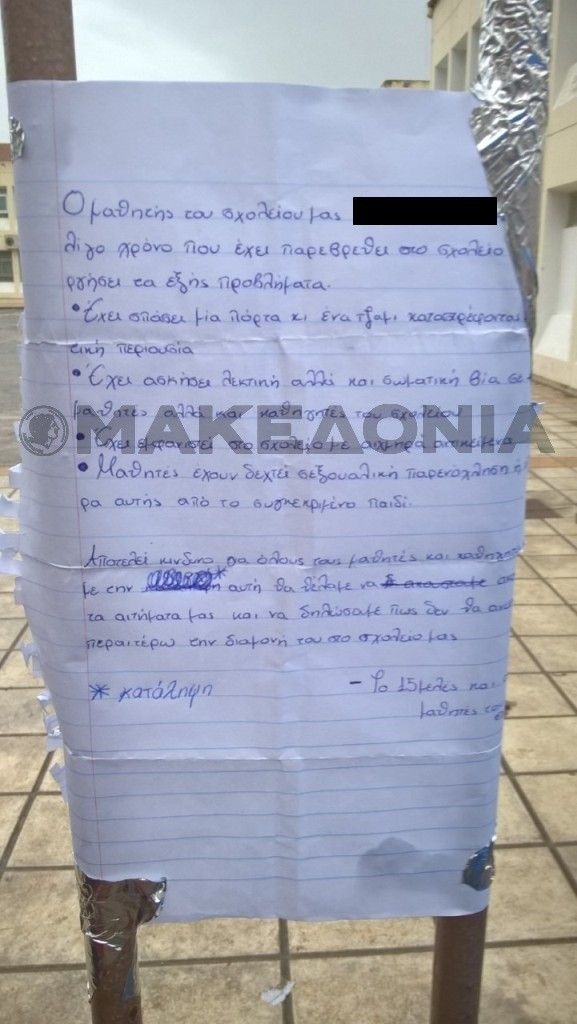 Ο μαθητής του σχολείου μας
λίγο χρόνο που έχει παρεβρεθεί στο σχολείο
ργήσει τα εξής προβλήματα.
• Έχει σπάσει μία πόρτα κι ένα τζάμι καταστρέφοντας
τική περιουσία
• Έχει ασκήσει λεκτική αλλά και σωματική βία σε
μαθητές αλλά και καθηγητές του σχολείου
ΜΑΚΕΔΟΝΙΑ
• Έχει εμφανιστεί στο σχολείο με αιχμηρά αντικείμενα
• Μαθητές έχουν δεχτεί σεξουαλική παρενόχληση
ρα αυτής από το συγκεκριμένο παιδί.
Αποτελεί κίνδυνο για όλους τους μαθητές και καθηγητ
με την * αυτή θα θέλαμε να
τα αιτήματα μας και να δηλώσαμε πως δεν θα
περαιτέρω την διαμονή του στο σχολείο μας
* κατάληψη
– Το 15μελές και
μαθητές το